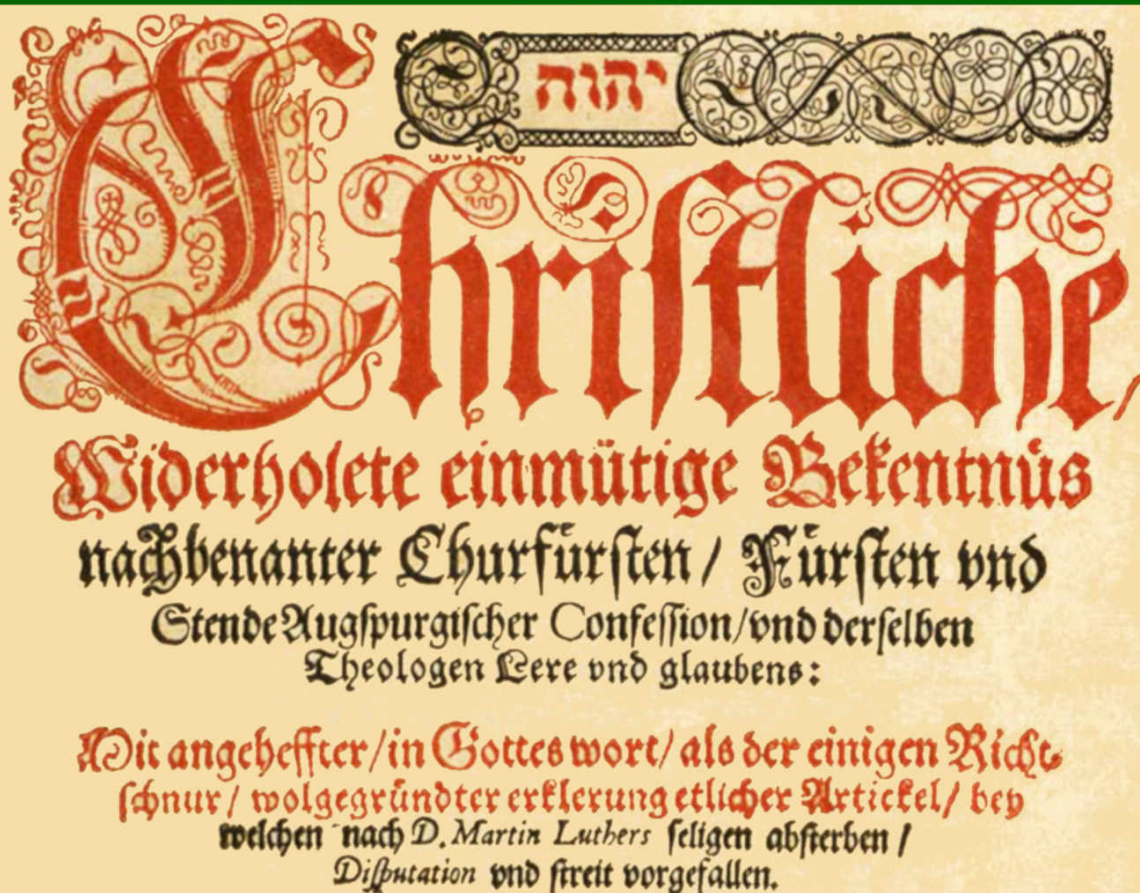 יהוה
Christliche,
Widerholete einmütige Bekentnüs
nachbenanter Churfürsten / Fürsten vnd
Stende Augspurgischer Confession / vnd derselben
Theologen Lere vnd glaubens:
Mit angeheffter / in Gottes wort / als der einigen Richt-
schnur / wolgegründter erklerung etlicher Artickel / bey
welchen nach D. Martin Luthers seligen absterben /
Disputation vnd streit vorgefallen.